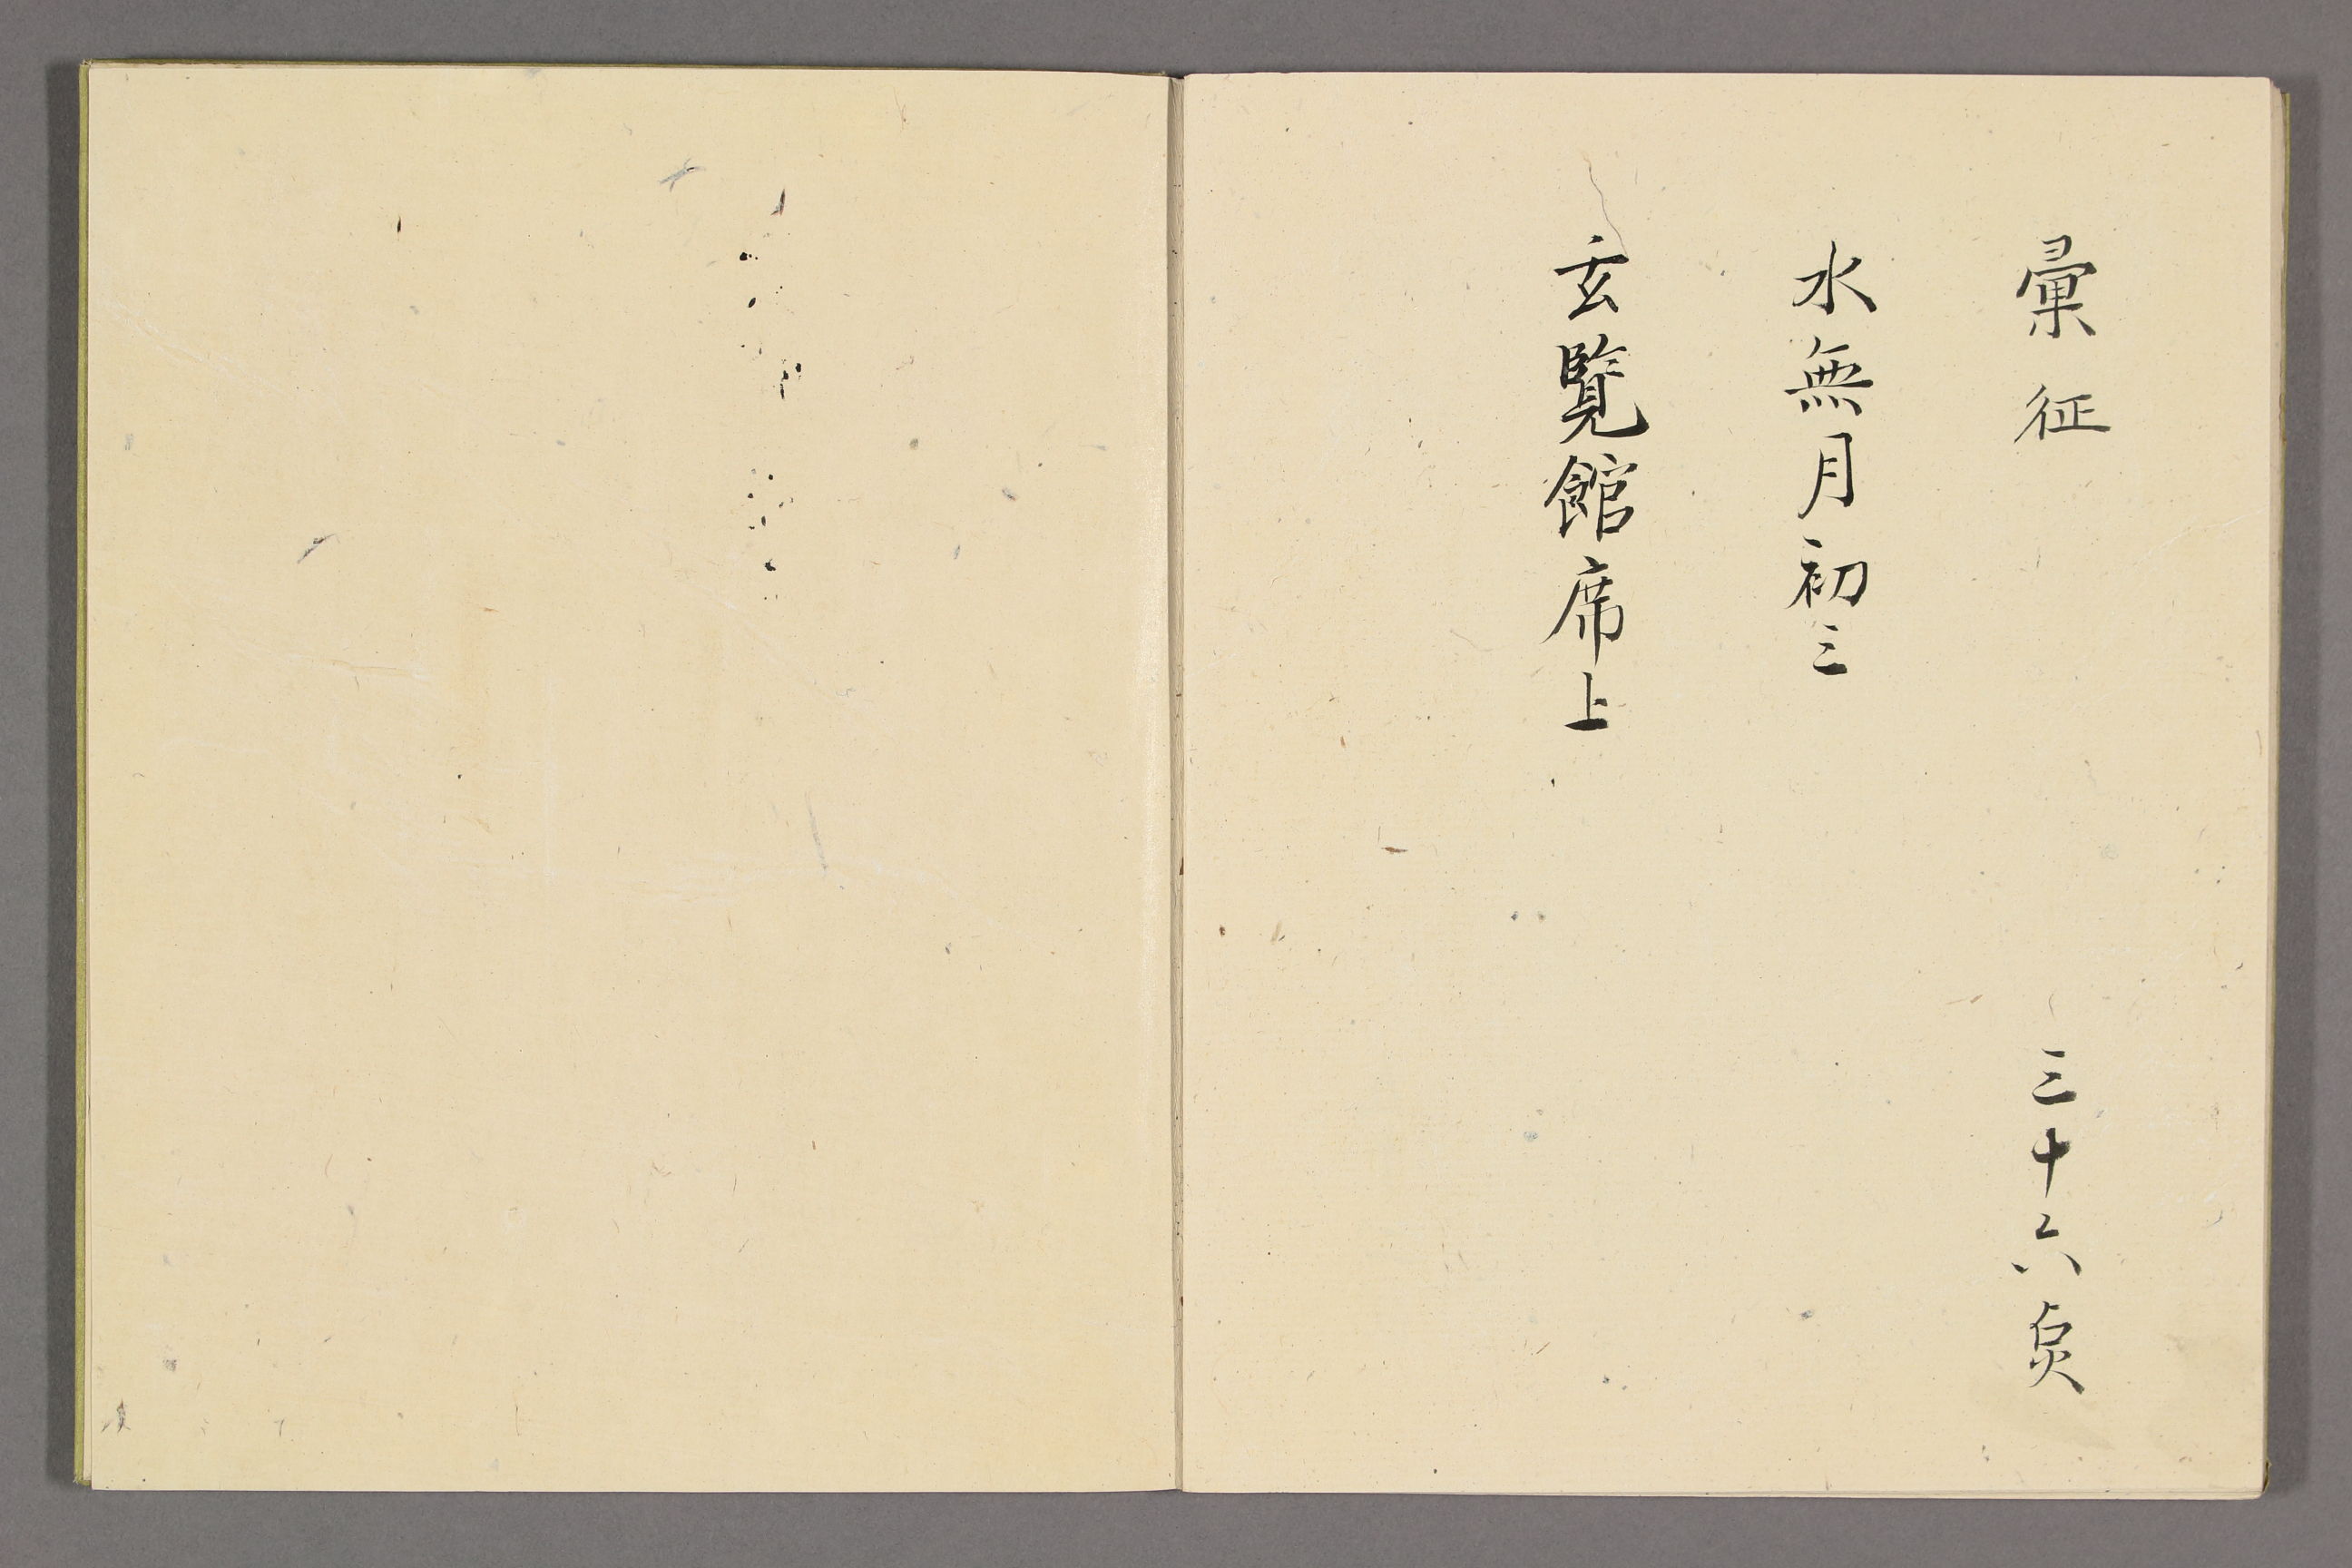 彙征　三十六点
水無月初三
玄覧館席上